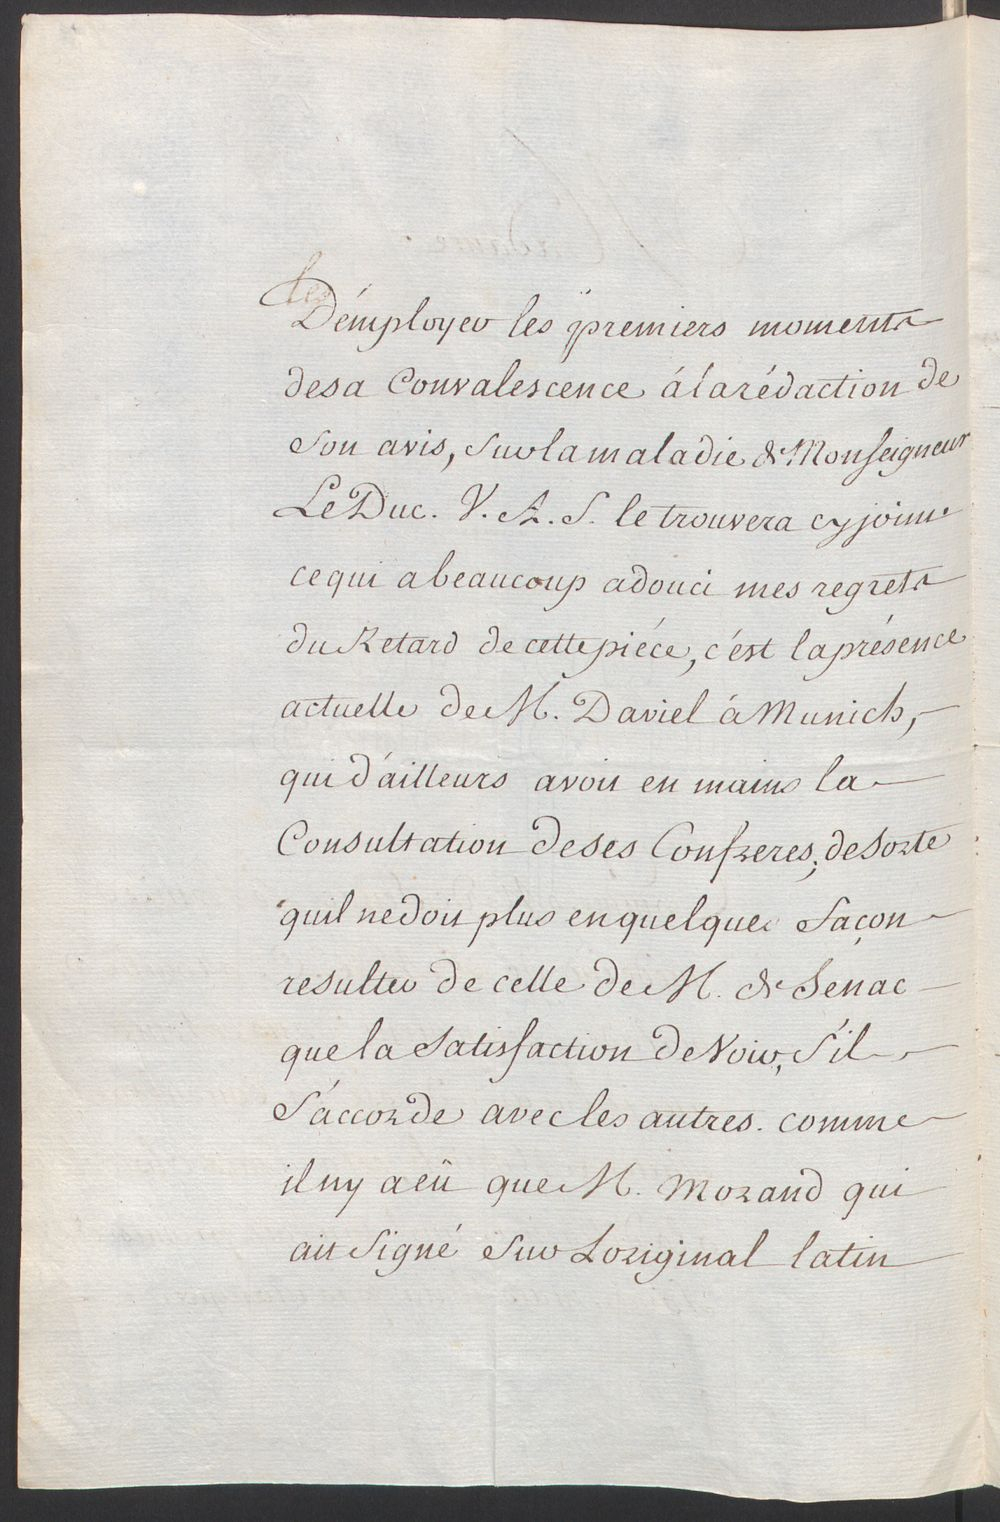 D'émployer les premiers moments
de sa Convalescence á la rédaction de
Son avis, Sur la maladie de Monseigneur
Le Duc. V. A. S. le trouvera cy joint
ce qui a beaucoup adouci mes regrets
du Retard de cette piéce, c'ést la présence
actuelle de M. Daviel á Munich,
qui d'ailleurs avoit en mains la
Consultation de ses Confreres; de Sorte
quil ne doit plus en quelque façon
resulter de celle de M. de Senac
que la Satisfaction de Voir, S'il
S'accorde avec les autres. comme
il ny a eü que M. Morand qui
ait Signé Sur Loriginal latin